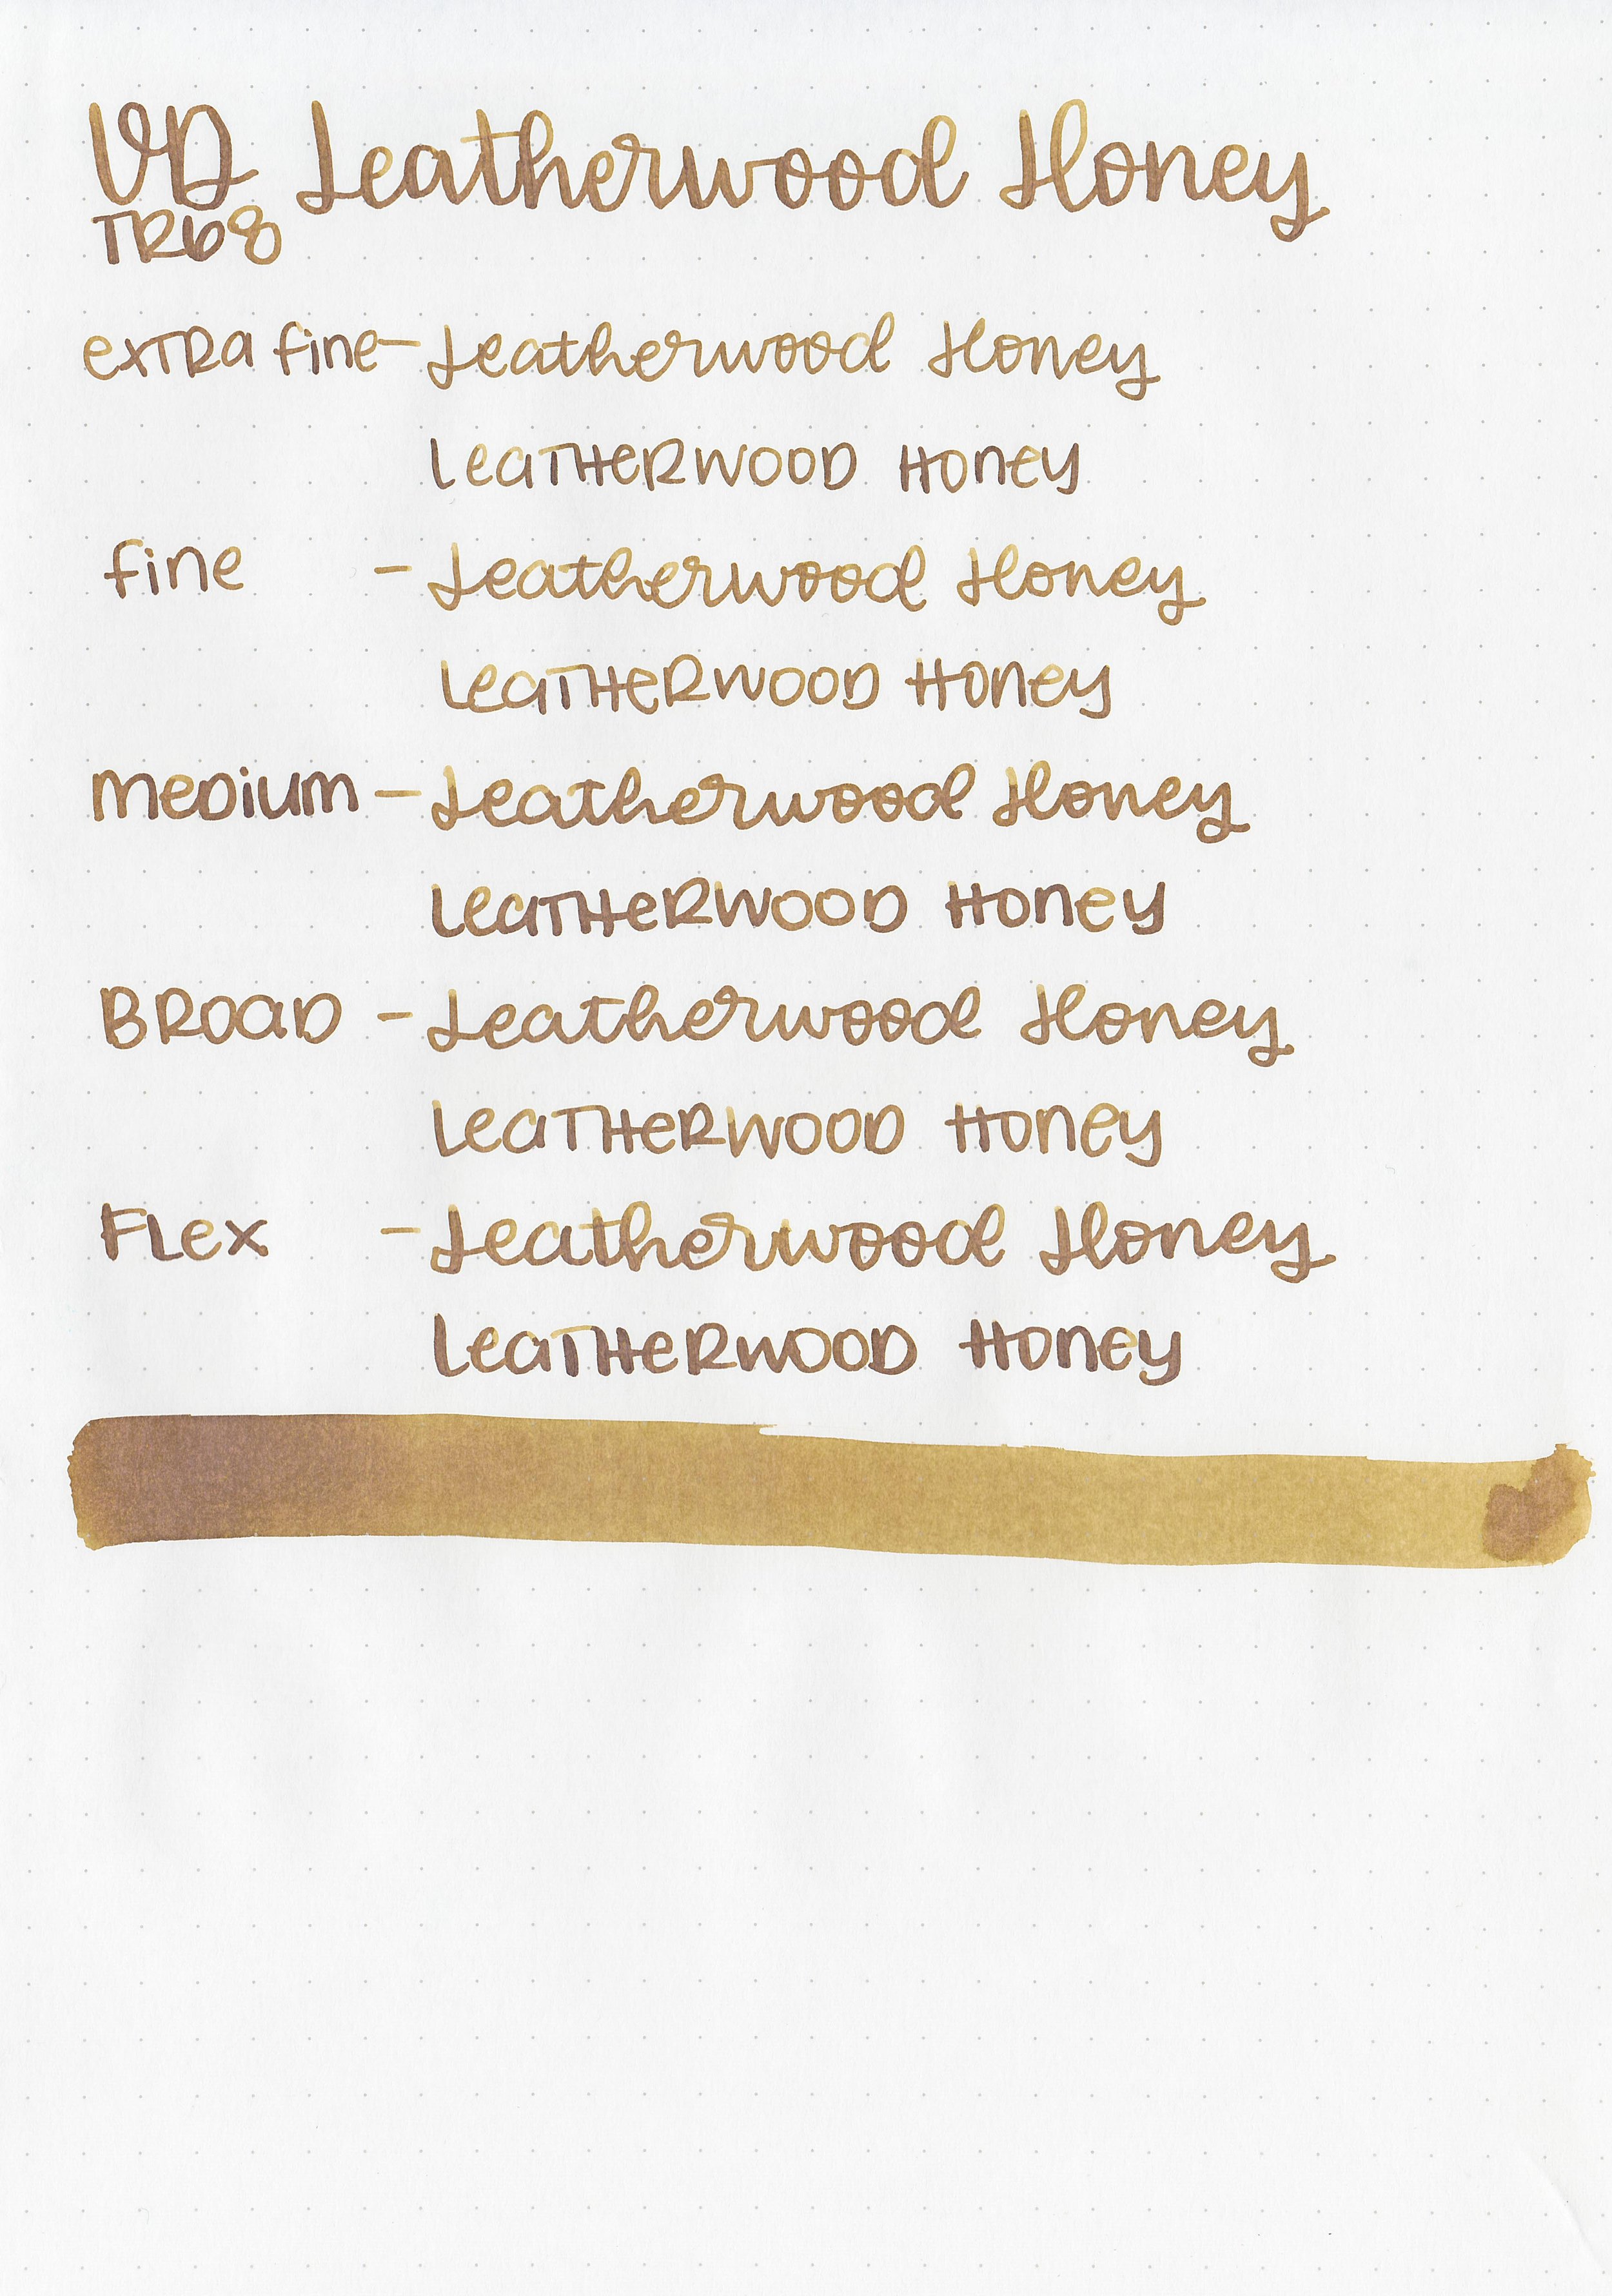 VD Leatherwood Honey
TR68
extra fine - Leatherwood Honey
Leatherwood Honey
fine - Leatherwood Honey
Leatherwood Honey
medium - Leatherwood Honey
Leatherwood Honey
Broad - Leatherwood Honey
Leatherwood Honey
Flex - Leatherwood Honey
Leatherwood Honey